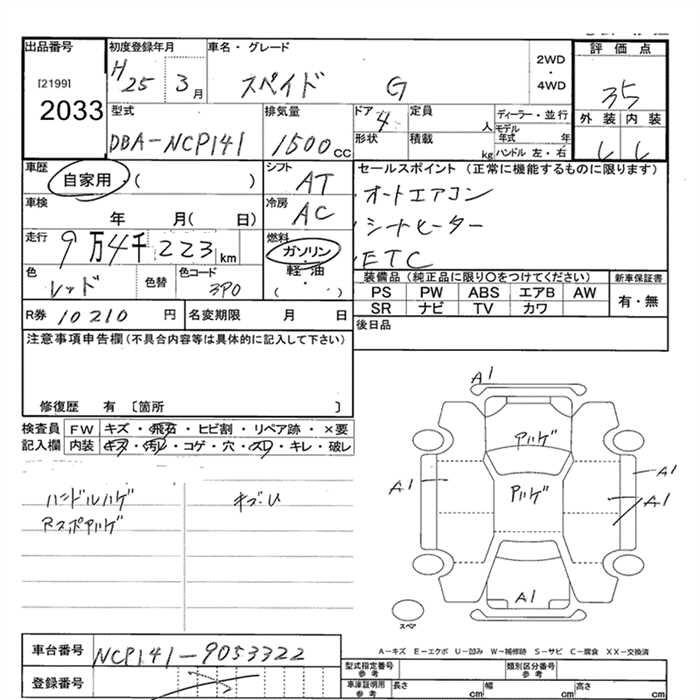 出品番号
[2199]
2033
初度登録年月
H25 3月
車名・グレード
スペイド G
2WD
・
4WD
評価点
3.5
外装 内装
型式
DBA-NCP141
排気量
1500cc
ドア
4
定員
人
形状
積載
kg
ディーラー・並行
モデル年式 年
ハンドル 左・右
車歴
自家用 ( )
シフト
AT
車検
年 月( 日)
冷房
AC
走行
9万4千223km
燃料
ガソリン
・
軽・油
( )
色
レッド
色替
色コード
3P0
セールスポイント (正常に機能するものに限ります)
・オートエアコン
・シートヒーター
・ETC
装備品 (純正品に限り○をつけてください)
PS PW ABS エアB AW
SR ナビ TV カワ
新車保証書
有・無
R券 10210 円
名変期限 月 日
後日品
注意事項申告欄(不具合内容等は具体的に記入して下さい)
修復歴 有 〔箇所 〕
検査員記入欄
FW キズ・飛石・ヒビ割・リペア跡・×要
内装 キズ・汚レ・コゲ・穴・スレ・キレ・破レ
ハンドルハゲ
Rスポアハゲ
キズU
A1
アハゲ
アハゲ
A1
A1
A1
A1
スペア
A-キズ E-エクボ U-凹み W-補修跡 S-サビ C-腐食 XX-交換済
車台番号
NCP141-9053322
登録番号
型式指定番号
参考
類別区分番号
参考
車庫証明用
参考
長さ cm
幅 cm
高さ cm